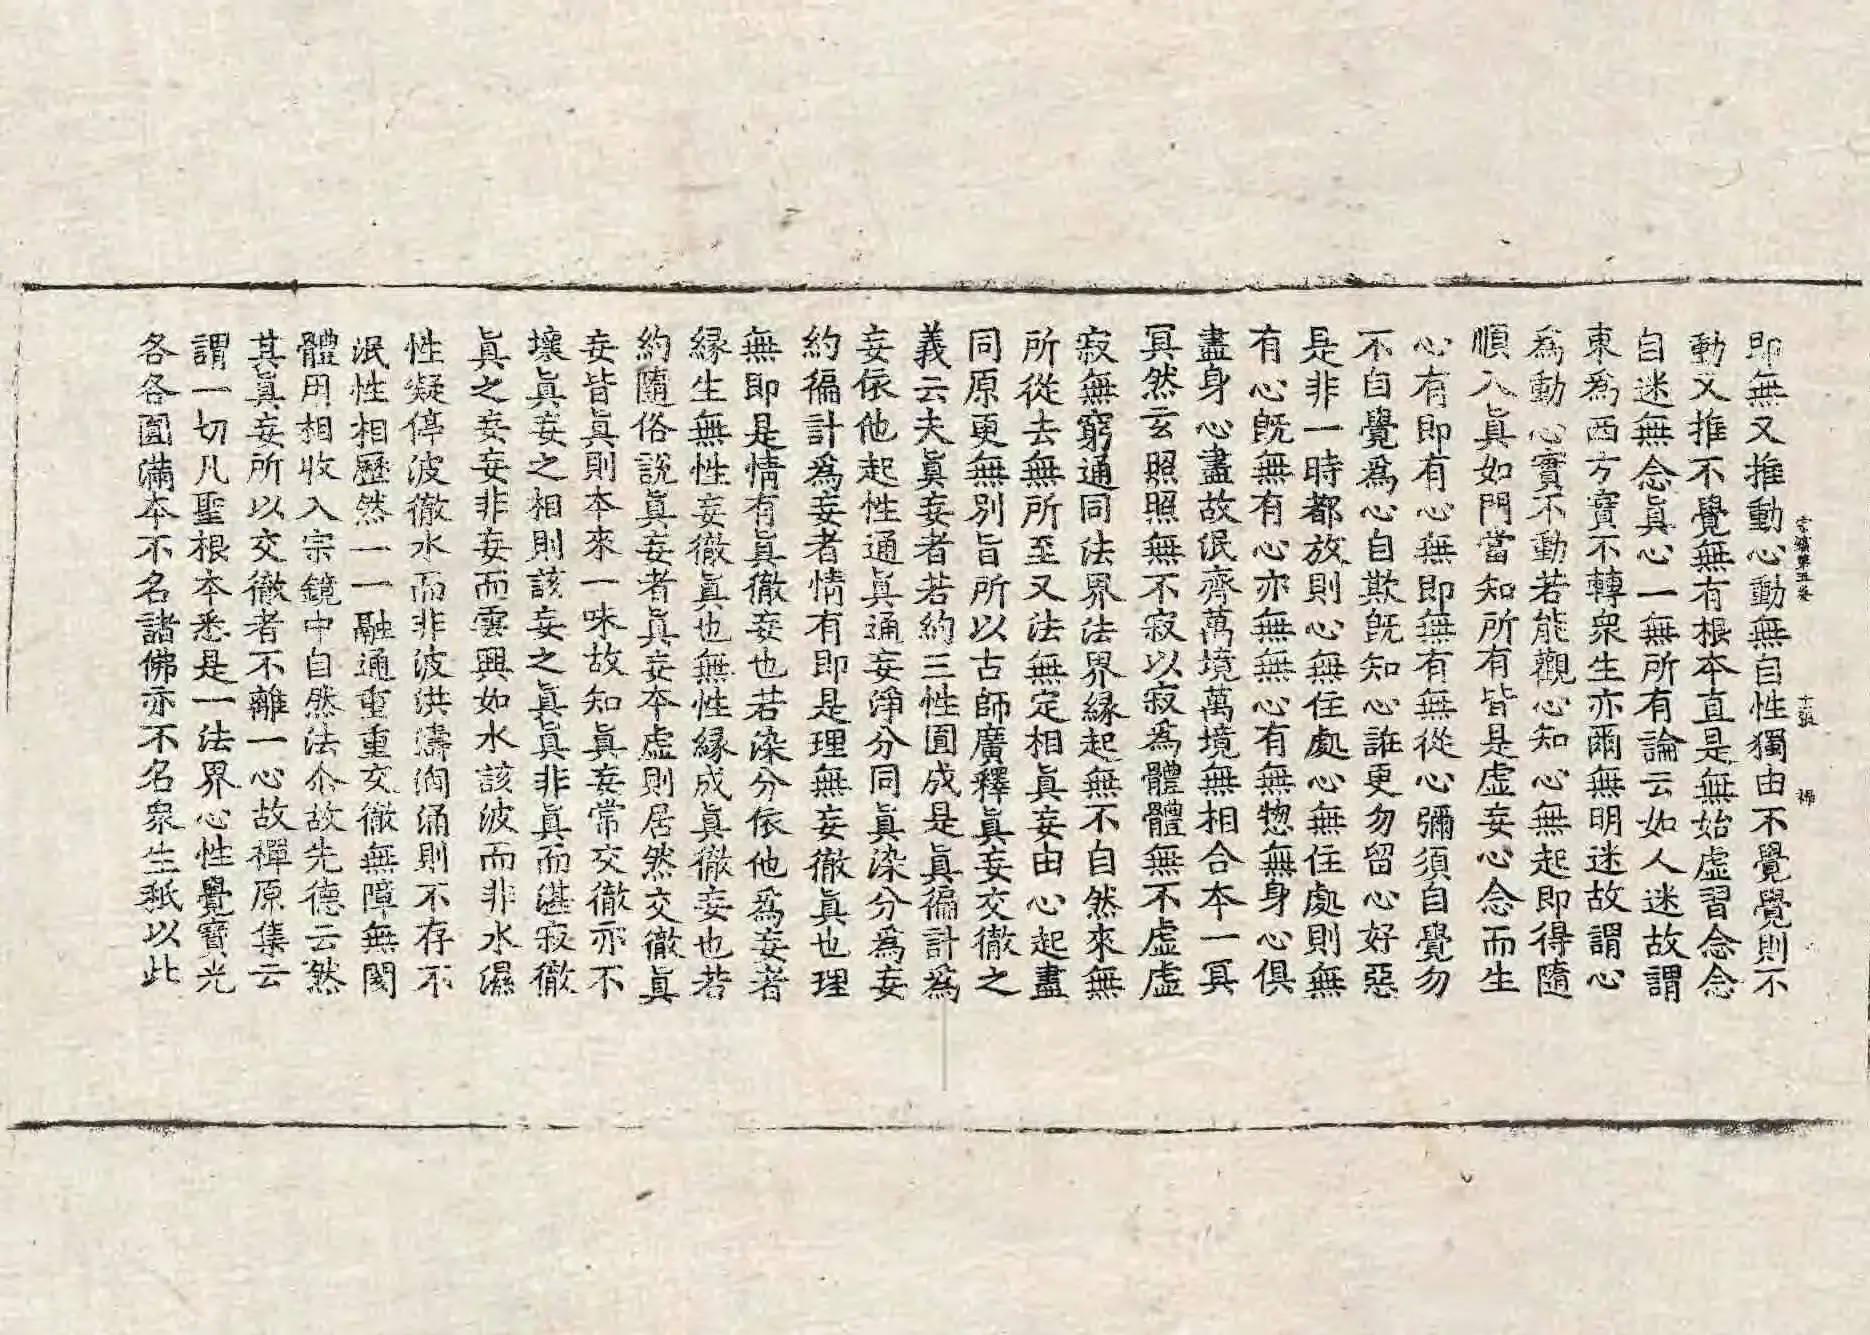 宗鏡第五卷 十張 禄
即無又推動心動無自性獨由不覺覺則不
動又推不覺無有根本直是無始虛習念念
自迷無念眞心一無所有論云如人迷故謂
東爲西方實不轉衆生亦爾無明迷故謂心
爲動心實不動若能觀心知心無起即得隨
順入眞如門當知所有皆是虛妄心念而生
心有即有心無即無有無從心彌須自覺勿
不自覺爲心自欺旣知心誑更勿留心好惡
是非一時都放則心無住處心無住處則無
有心旣無有心亦無無心有無惣無身心俱
盡身心盡故泯齊萬境萬境無相合本一冥
冥然玄照照無不寂以寂爲體體無不虛虛
寂無窮通同法界法界緣起無不自然來無
所從去無所至又法無定相眞妄由心起盡
同原更無別旨所以古師廣釋眞妄交徹之
義云夫眞妄者若約三性圓成是眞徧計爲
妄依他起性通眞通妄淨分同眞染分爲妄
約徧計爲妄者情有即是理無妄徹眞也理
無即是情有眞徹妄也若染分依他爲妄者
緣生無性妄徹眞也無性緣成眞徹妄也若
約隨俗說眞妄者眞妄本虛則居然交徹眞
妄皆眞則本來一味故知眞妄常交徹亦不
壞眞妄之相則該妄之眞眞非眞而湛寂徹
眞之妄妄非妄而雲興如水該波而非水濕
性凝停波徹水而非波洪濤洶涌則不存不
泯性相歷然一一融通重重交徹無障無閡
體用相收入宗鏡中自然法尒故先德云然
其眞妄所以交徹者不離一心故禪原集云
謂一切凡聖根本悉是一法界心性覺寶光
各各圓滿本不名諸佛亦不名衆生秖以此